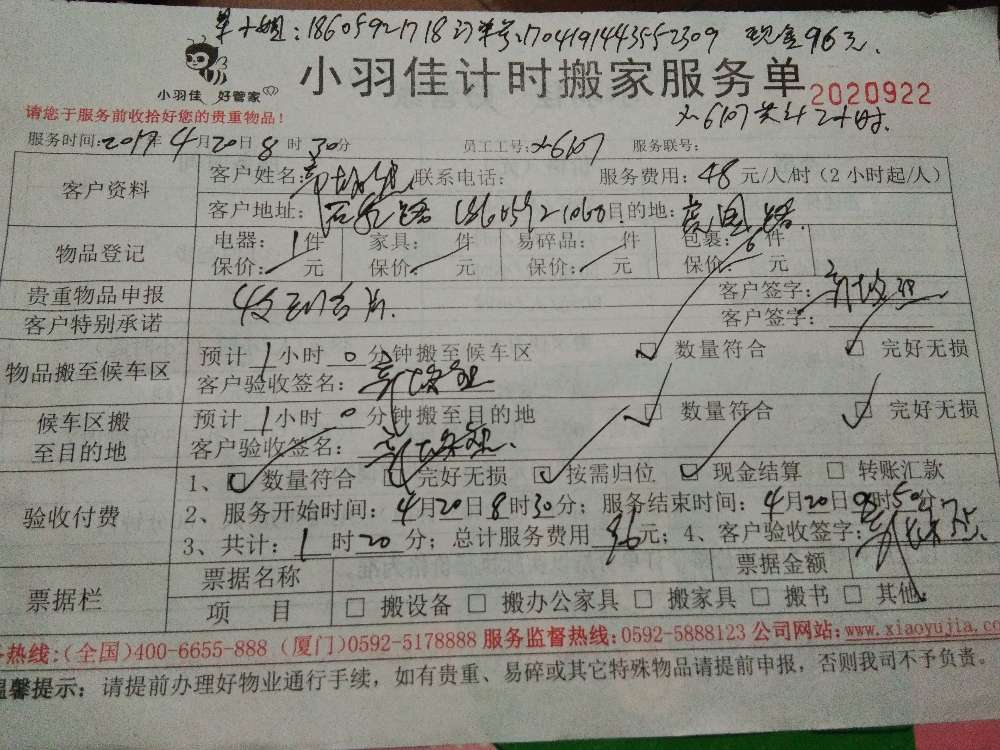 单小姐：18605921718 订单号：17041914435552309 现金96元.
小羽佳 好管家
小羽佳计时搬家服务单
2020922
请您于服务前收拾好您的贵重物品！
x-6107 共计2小时.
服务时间：2017年4月20日8时30分 员工工号：x-6107 服务联号：
客户资料 客户姓名： 联系电话： 服务费用：48元/人/时（2小时起/人）
客户地址： 路 18605921060 目的地： 路
物品登记 电器：1件 家具： 件 易碎品： 件 包裹：6件
保价： 元 保价： 元 保价： 元 保价： 元
贵重物品申报 客户签字：
客户特别承诺 客户签字：
物品搬至候车区 预计1小时0分钟搬至候车区 数量符合 完好无损
客户验收签名：
候车区搬至目的地 预计1小时0分钟搬至目的地 数量符合 完好无损
客户验收签名：
验收付费 1、数量符合 完好无损 按需归位 现金结算 转账汇款
2、服务开始时间：4月20日8时30分；服务结束时间：4月20日9时50分
3、共计：1时20分；总计服务费用96元；4、客户验收签字：
票据栏 票据名称 票据金额
项 目 搬设备 搬办公家具 搬家具 搬书 其他
热线：（全国）400-6655-888（厦门）0592-5178888 服务监督热线：0592-5888123 公司网站：www.xiaoyujia.co
温馨提示：请提前办理好物业通行手续，如有贵重、易碎或其它特殊物品请提前申报，否则我司不予负责。